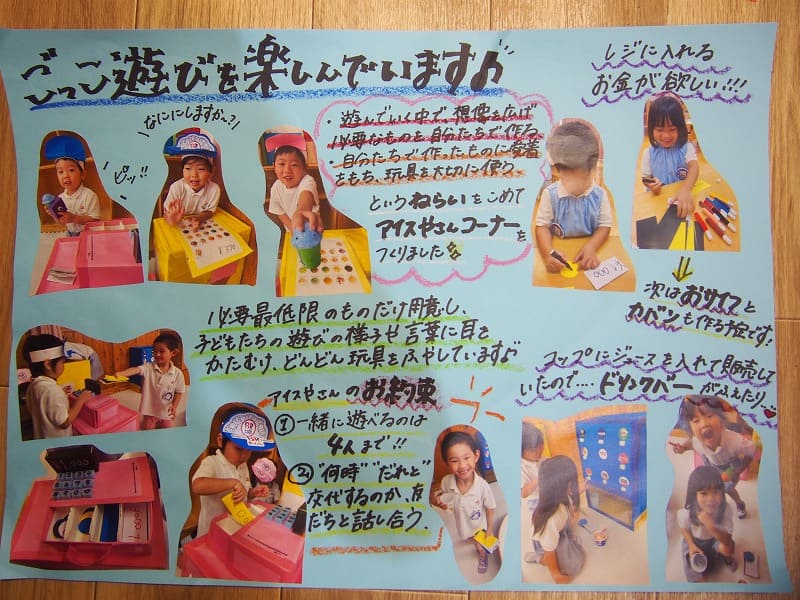 ごっこ遊びを楽しんでいます♪
なににしますか〜?!
ピッ!!
・遊んでいく中で、想像を広げ
必要なものを自分たちで作る。
・自分たちで作ったものに愛着
をもち、玩具を大切に使う。
というねらいをこめて
アイスやさんコーナーを
つくりました
レジに入れる
お金が欲しい!!!
¥370
次はおサイフと
カバンも作る桜です!
必要最低限のものだけ用意し、
子どもたちの遊びの様子や言葉に耳を
かたむけ、どんどん玩具をふやしています♪
コップにジュースを入れて販売して
いたので‥‥ドリンクバーがふえたり。
アイスやさんのお約束
①一緒に遊べるのは
4人まで!!
②"何時""だれと"
交代するのか、友
だちと話し合う。